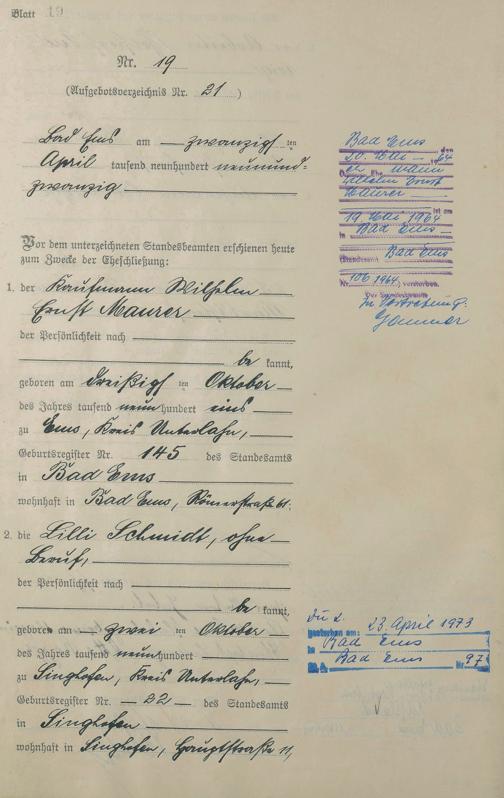 Blatt 19
Nr. 19
(Aufgebotsverzeichnis Nr. 21)
Bad Ems am zwanzigsten
April tausend neunhundert neunund=
zwanzig
Vor dem unterzeichneten Standesbeamten erschienen heute
zum Zwecke der Eheschließung:
1. der Kaufmann Wilhelm
Ernst Maurer
der Persönlichkeit nach
be kannt,
geboren am dreißigsten Oktober
des Jahres tausend neunhundert eins
zu Ems, Kreis Unterlahn,
Geburtsregister Nr. 145 des Standesamts
in Bad Ems
wohnhaft in Bad Ems, Römerstraße 61.
2. die Lilli Schmidt, ohne
Beruf,
der Persönlichkeit nach
be kannt,
geboren am zwei ten Oktober
des Jahres tausend neunhundert
zu Singhofen, Kreis Unterlahn,
Geburtsregister Nr. 22 des Standesamts
in Singhofen
wohnhaft in Singhofen, Hauptstraße 11,
Bad Ems den
20. Mai 1964
Ehemann
Wilhelm Ernst
Maurer
ist am
19. Mai 1964
in Bad Ems
Standesamt Bad Ems
Nr. 106/1964 verstorben.
Der Standesbeamte
In Vertretung:
23. April 1973
gestorben am:
in Bad Ems
Bad Ems Nr. 97